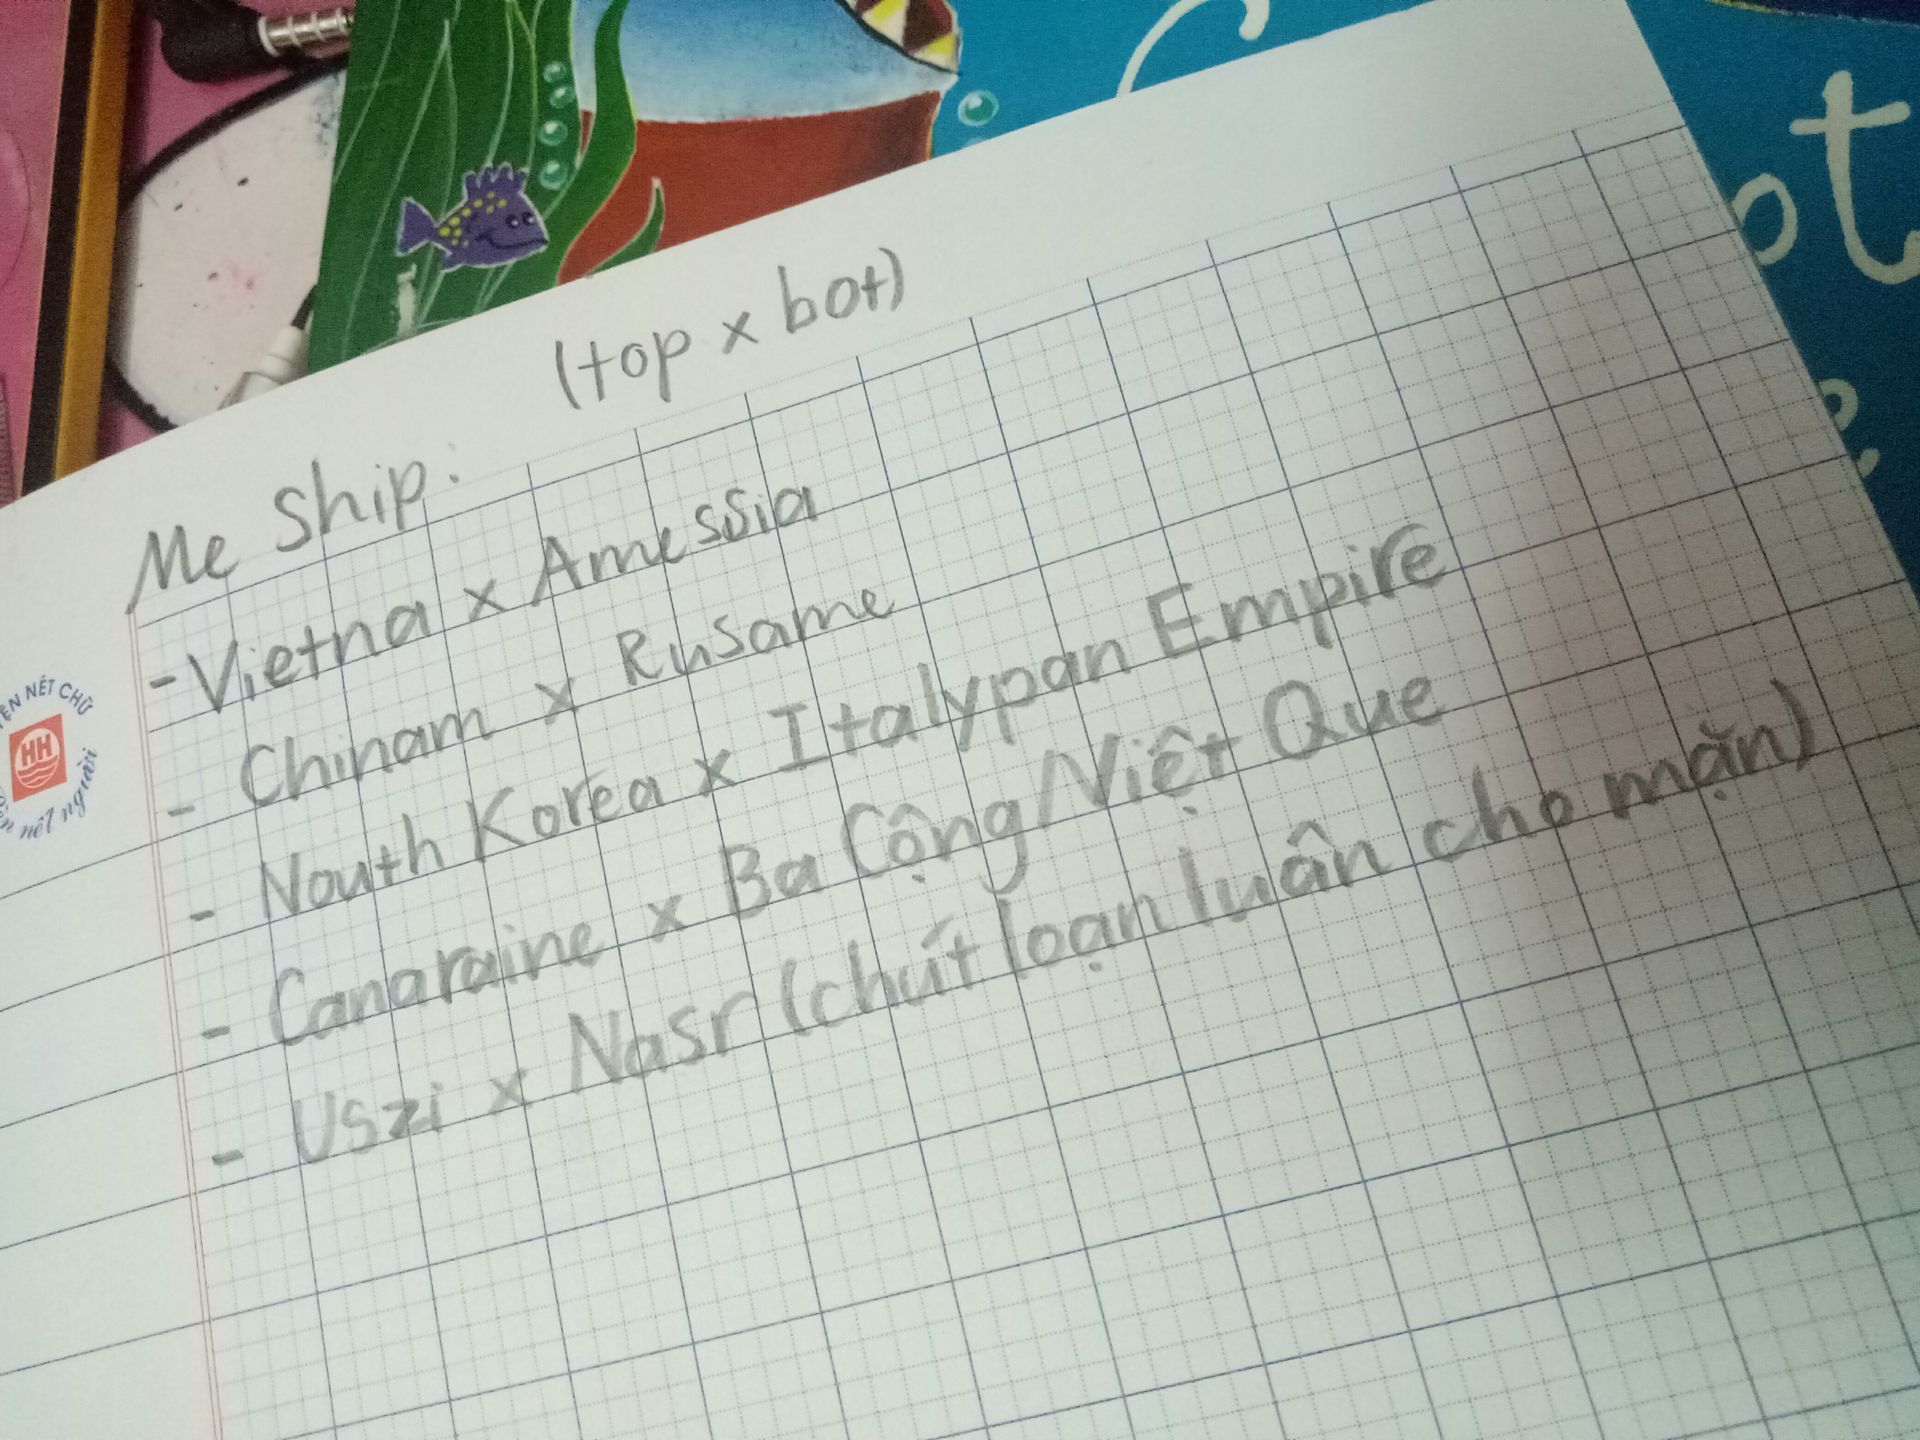 (top x bot)
Me Ship:
- Vietna x Amessia
- Chinam x Rusame
- Nouth Korea x Italypan Empire
- Canaraine x Ba Cộng/Việt Que
- Uszi x Nasr (chút loạn luân cho mặn)
NÉT CHỮ
HH
nết người
ot